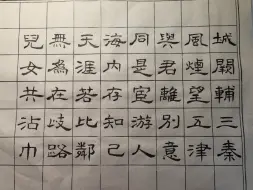 城闕輔三秦
風煙望五津
與君離別意
同是宦游人
海內存知己
天涯若比鄰
無為在歧路
兒女共沾巾